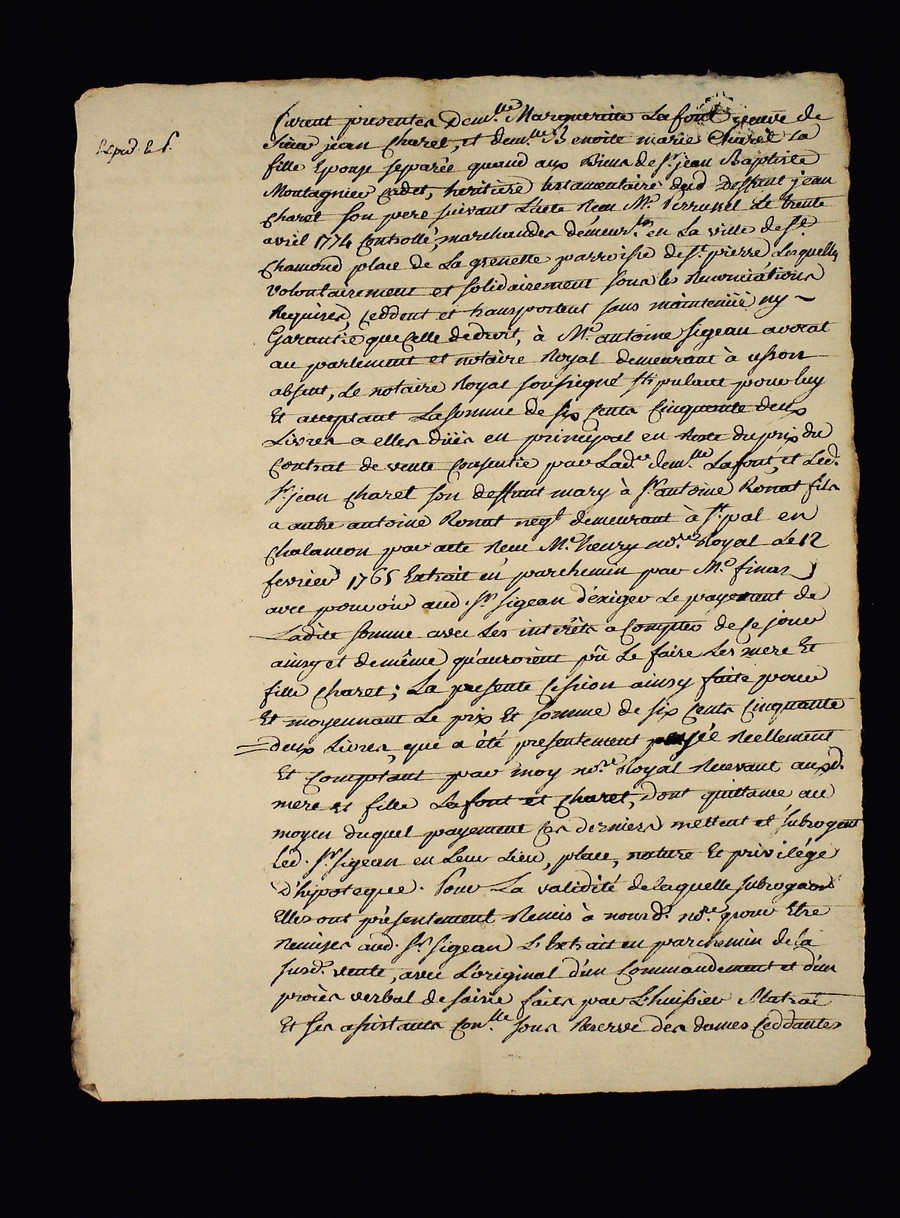 Exped. le f.
furent presentes Dem.lle Marguerite Lafont veuve de
Sieur jean Charet, et dem.lle Benoite marie Charet la
fille Epouse separée quand aux Biens de S.r jean Baptiste
Montagnier Cadet, heritiere testamentaire dud deffunt jean
Charet son pere suivant l'acte Reçu M.e Terrussel Le trente
avril 1774 Controllé, marchandes demeur.tes en La ville de S.t
Chamond place de La grenette parroisse de S.t pierre, Lesquelles
volontairement et solidairement sous les Renonciations
Requises, Ceddent et transportent sans maintenüe ny ~
Garantie que Celle de droit, à M.e antoine Sigean avocat
au parlement et notaire Royal demeurant à usson
absent, Le notaire Royal soussigné stipulant pour luy
Et acceptant La somme de six Cents Cinquante deux
Livres a elles düës en principal en Reste du prix du
Contrat de vente Consentie par Lad.e dem.lle Lafont, et Led.
S.r jean Charet son deffunt mary à S.r antoine Ronat fils
a autre antoine Ronat neg.t demeurant à S.t pal en
Chalancon par acte Reçu M.e henry no.re Royal Le 12
fevrier 1765 Extrait en parchemin par M.e finas
avec pouvoir aud. S.r Sigean d'exiger Le payement de
Ladite somme avec Les interêts a Compter de Ce jour
ainsy et de même qu'auroient pû Le faire Les mere Et
fille Charet; La presente Cession ainsy faite pour
Et moyennant Le prix Et somme de six Cents Cinquante
deux Livres, que a été presentement payée Reellement
Et Comptant par moy no.re Royal Recevant auxd.
mere et fille Lafont et Charet, dont quittance au
moyen duquel payement Ces derniers mettent et subrogent
Led. S.r Sigean en Leur Lieu, place, nature Et privilége
D'hipoteque. Pour La validité de laquelle subrogaon
Elles ont présentement Remis à nousd. no.re pour Etre
Remises aud. S.r Sigean L'Extrait en parchemin de la
susd. vente, avec L'original d'un Commandement et d'un
procès verbal de saisie faits par L'huissier Matrat
Et ses assistants Con.lle sous Reserve des dames Ceddantes